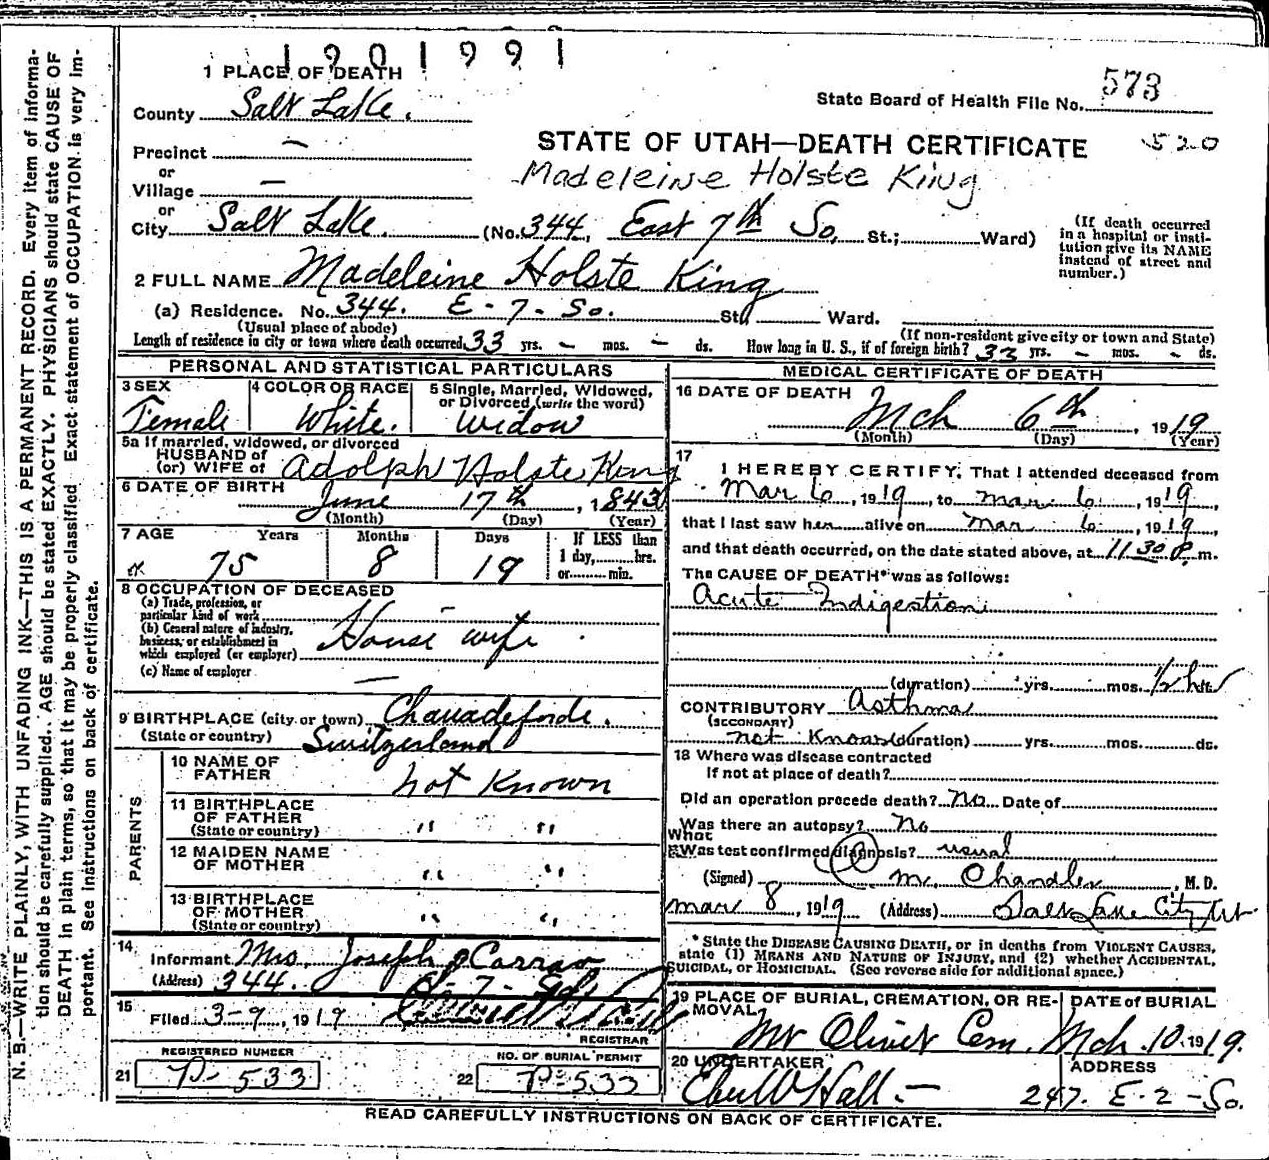 1901991
1 PLACE OF DEATH
573
State Board of Health File No.
County Salt Lake.
STATE OF UTAH—DEATH CERTIFICATE 520
Precinct —
Madeleine Holste King
or
Village —
or
City Salt Lake. (No. 344, East 7th So, St.; Ward)
(If death occurred in a hospital or insti-
tution give its NAME
instead of street and
number.)
2 FULL NAME Madeleine Holste King
(a) Residence. No. 344. E - 7 - So. St., Ward.
(Usual place of abode)
(If non-resident give city or town and State)
Length of residence in city or town where death occurred 33 yrs. – mos. – ds. How long in U. S., if of foreign birth? 33 yrs. – mos. – ds.
PERSONAL AND STATISTICAL PARTICULARS
3 SEX Female
4 COLOR OR RACE White.
5 Single, Married, Widowed,
or Divorced (write the word)
Widow
5a If married, widowed, or divorced
HUSBAND of
(or) WIFE of Adolph Holste King
6 DATE OF BIRTH June 17th, 1843
(Month) (Day) (Year)
7 AGE Years Months Days If LESS than
1 day, hrs.
or min.
75 8 19
8 OCCUPATION OF DECEASED
(a) Trade, profession, or
particular kind of work –
(b) General nature of industry,
business, or establishment in
which employed (or employer) House wife
(c) Name of employer —
9 BIRTHPLACE (city or town) Chauadefonde.
(State or country) Switzerland
PARENTS
10 NAME OF
FATHER not Known
11 BIRTHPLACE
OF FATHER
(State or country) " "
12 MAIDEN NAME
OF MOTHER " "
13 BIRTHPLACE
OF MOTHER
(State or country) " "
14
Informant Mrs Joseph
(Address) 344.
15
Filed 3-9, 1919
REGISTRAR
REGISTERED NUMBER
21 P-533
NO. OF BURIAL PERMIT
22 P-533
MEDICAL CERTIFICATE OF DEATH
16 DATE OF DEATH
Mch 6th, 1919
(Month) (Day) (Year)
17
I HEREBY CERTIFY, That I attended deceased from
Mar 6, 1919, to Mar 6, 1919,
that I last saw her alive on Mar 6, 1919,
and that death occurred, on the date stated above, at 11 30 P. m.
The CAUSE OF DEATH* was as follows:
Acute Indigestion
(duration) yrs. mos. 1/2 hr
CONTRIBUTORY Asthma
(SECONDARY)
not Known (duration) yrs. mos. ds.
18 Where was disease contracted
If not at place of death?
Did an operation precede death? No Date of
Was there an autopsy? No
What
Was test confirmed diagnosis? usual
(Signed) M. Chandler, M. D.
Mar 8, 1919 (Address) Salt Lake City Ut
* State the DISEASE CAUSING DEATH, or in deaths from VIOLENT CAUSES,
state (1) MEANS AND NATURE OF INJURY, and (2) whether ACCIDENTAL,
SUICIDAL, or HOMICIDAL. (See reverse side for additional space.)
19 PLACE OF BURIAL, CREMATION, OR RE-
MOVAL
Mt Olivet Cem.
DATE of BURIAL
Mch. 10. 1919.
20 UNDERTAKER
Eber W Hall. —
ADDRESS
247. E-2-So.
READ CAREFULLY INSTRUCTIONS ON BACK OF CERTIFICATE.
N. B.—WRITE PLAINLY, WITH UNFADING INK—THIS IS A PERMANENT RECORD. Every item of informa-
tion should be carefully supplied. AGE should be stated EXACTLY. PHYSICIANS should state CAUSE OF
DEATH in plain terms, so that it may be properly classified. Exact statement of OCCUPATION is very im-
portant. See instructions on back of certificate.